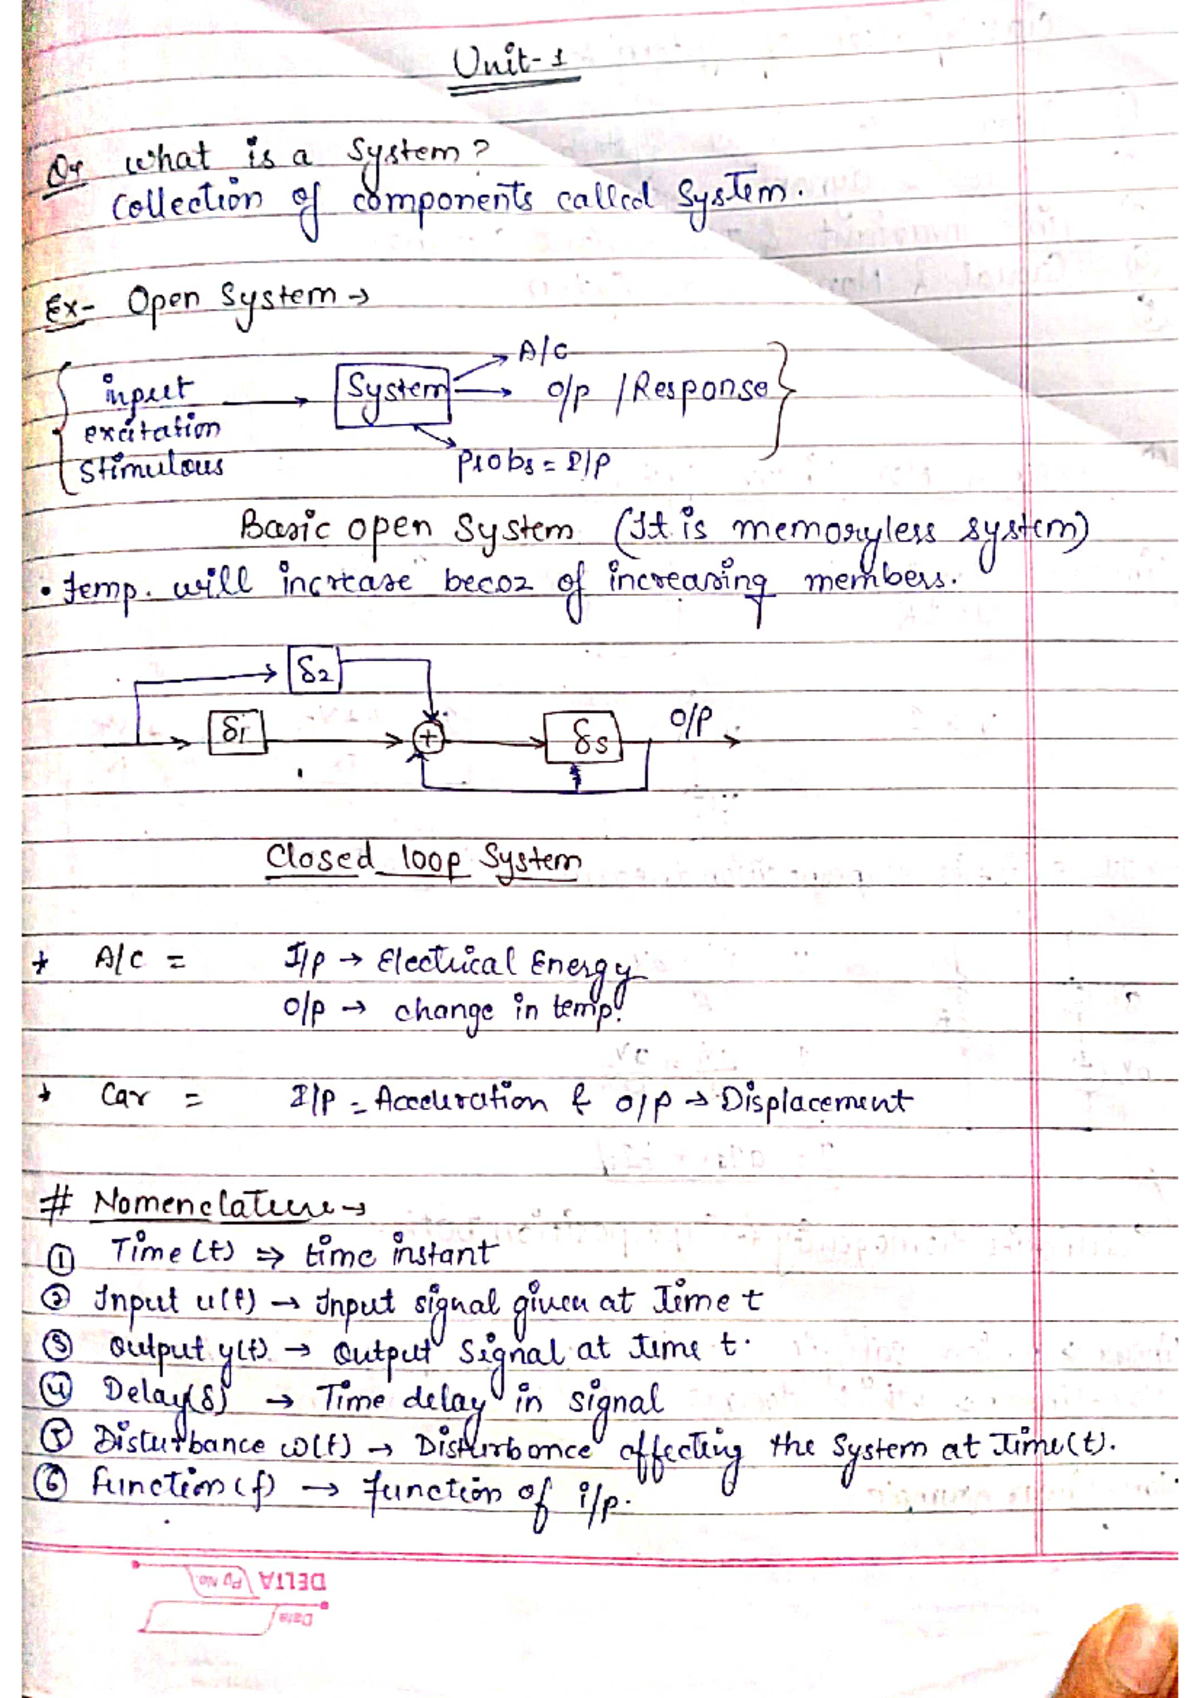 Unit-1
Q1 What is a System?
Collection of components called System.
Ex- Open System →
input → System → A/C
o/p / Response
excitation
Stimulous
Probs = I/P
Basic open System (It is memoryless system)
• temp. will increase becoz of increasing members.
δ2
δ1 + δs O/P
Closed loop System
* A/C = I/p → Electrical Energy
O/p → change in temp.
* Car = I/P = Acceleration & o/p → Displacement
# Nomenclature →
① Time (t) ⇒ time instant
② Input u(t) → Input signal given at Time t
③ Output y(t). → Output Signal at time t.
④ Delay(δ) → Time delay in signal
⑤ Disturbance ω(t) → Disturbance affecting the System at Time(t).
⑥ function(f) → function of i/p.
DELTA Pg No.
Date